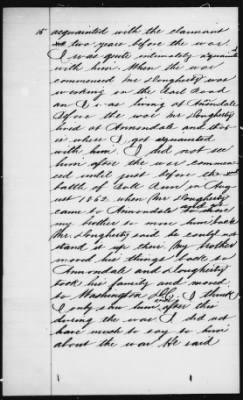 15 acquainted with the claimant
two years before the war
I was quite intimately acquainted
with him. When the war
commenced Mr Dougherty was
working on the Rail Road
and I was living at Annandale
Before the war Mr Dougherty
lived at Annandale and this
is where I got acquainted
with him. I did not see
him after the war commen-
ced until just before the
battle of Bull Run in Aug-
ust 1862 when Mr Dougherty
came to Annandale
my brother to move him back
Mr Dougherty said he could not
stand it up there. My brother
moved his things back to
Annandale and Dougherty
took his family and moved
to Washington D.C. I think
I only saw him once after this
during the war I did not
have much to say to him
about the war He said